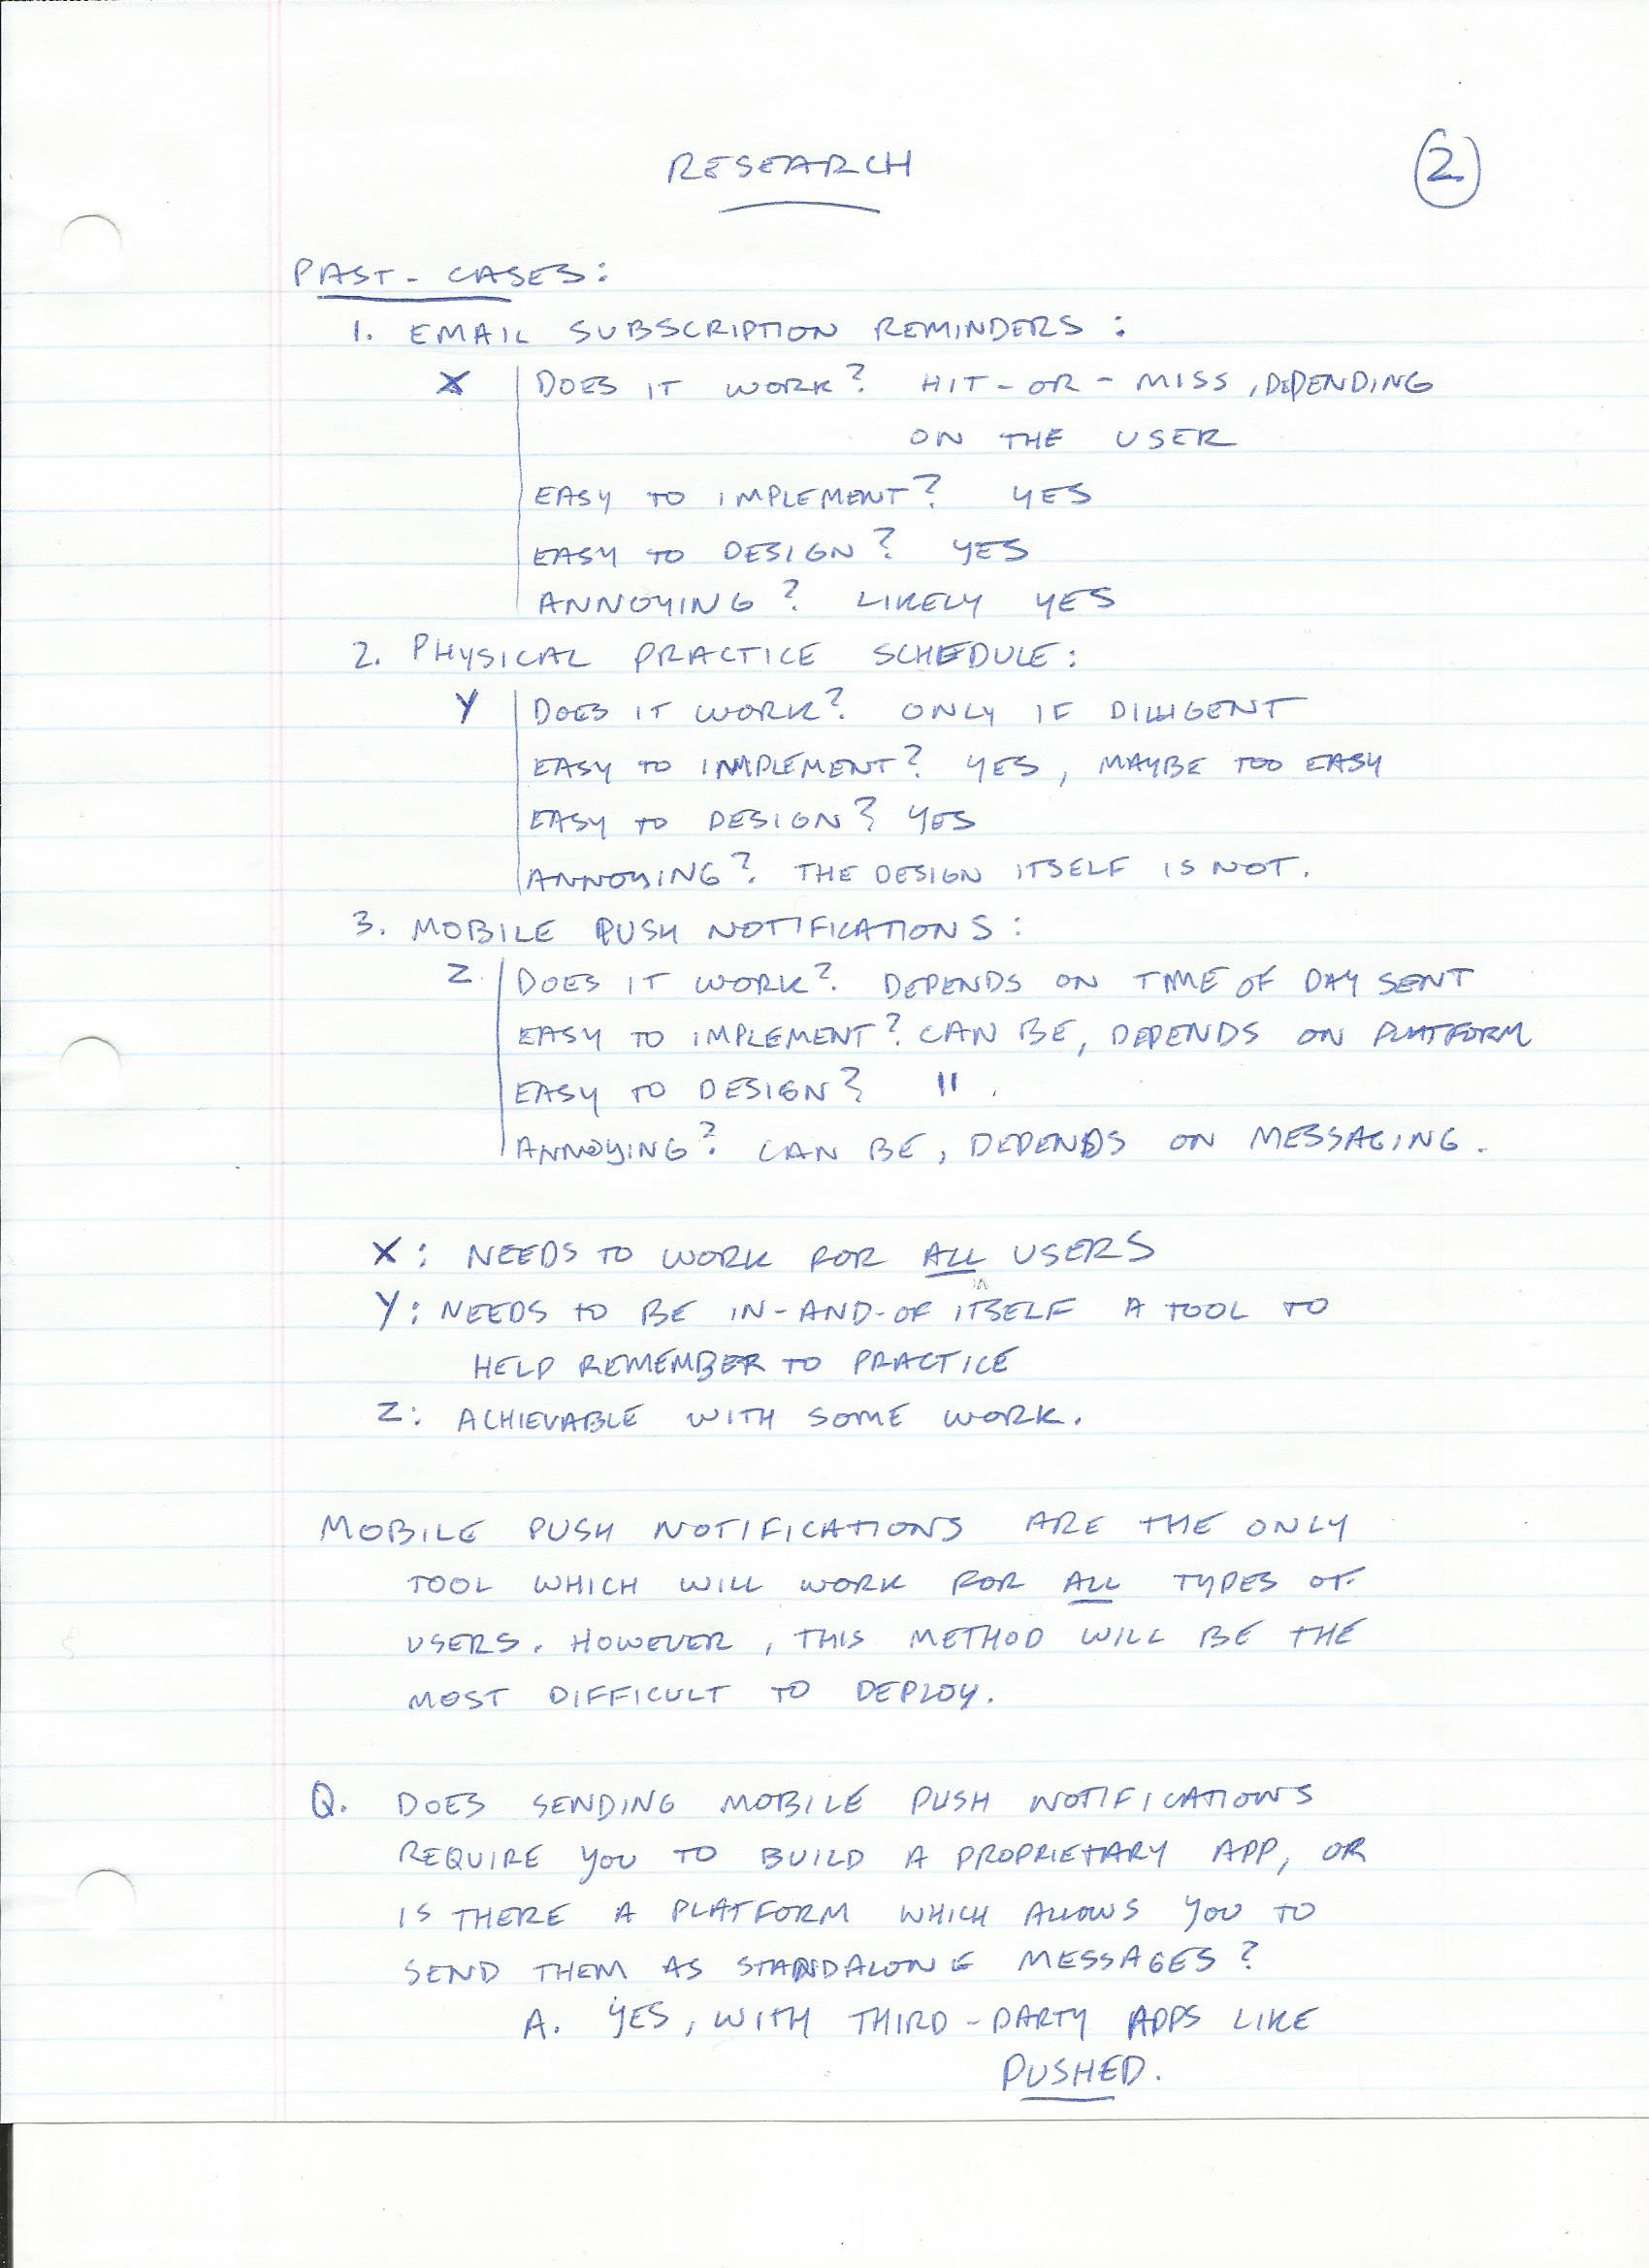 RESEARCH
2
PAST-CASES:
1. EMAIL SUBSCRIPTION REMINDERS:
X DOES IT WORK? HIT-OR-MISS, DEPENDING
ON THE USER
EASY TO IMPLEMENT? YES
EASY TO DESIGN? YES
ANNOYING? LIKELY YES
2. PHYSICAL PRACTICE SCHEDULE:
Y DOES IT WORK? ONLY IF DILLIGENT
EASY TO IMPLEMENT? YES, MAYBE TOO EASY
EASY TO DESIGN? YES
ANNOYING? THE DESIGN ITSELF IS NOT.
3. MOBILE PUSH NOTIFICATIONS:
Z DOES IT WORK? DEPENDS ON TIME OF DAY SENT
EASY TO IMPLEMENT? CAN BE, DEPENDS ON PLATFORM
EASY TO DESIGN? "
ANNOYING? CAN BE, DEPENDS ON MESSAGING.
X: NEEDS TO WORK FOR ALL USERS
Y: NEEDS TO BE IN-AND-OF ITSELF A TOOL TO
HELP REMEMBER TO PRACTICE
Z: ACHIEVABLE WITH SOME WORK.
MOBILE PUSH NOTIFICATIONS ARE THE ONLY
TOOL WHICH WILL WORK FOR ALL TYPES OF
USERS. HOWEVER, THIS METHOD WILL BE THE
MOST DIFFICULT TO DEPLOY.
Q. DOES SENDING MOBILE PUSH NOTIFICATIONS
REQUIRE YOU TO BUILD A PROPRIETARY APP, OR
IS THERE A PLATFORM WHICH ALLOWS YOU TO
SEND THEM AS STANDALONE MESSAGES?
A. YES, WITH THIRD-PARTY APPS LIKE
PUSHED.